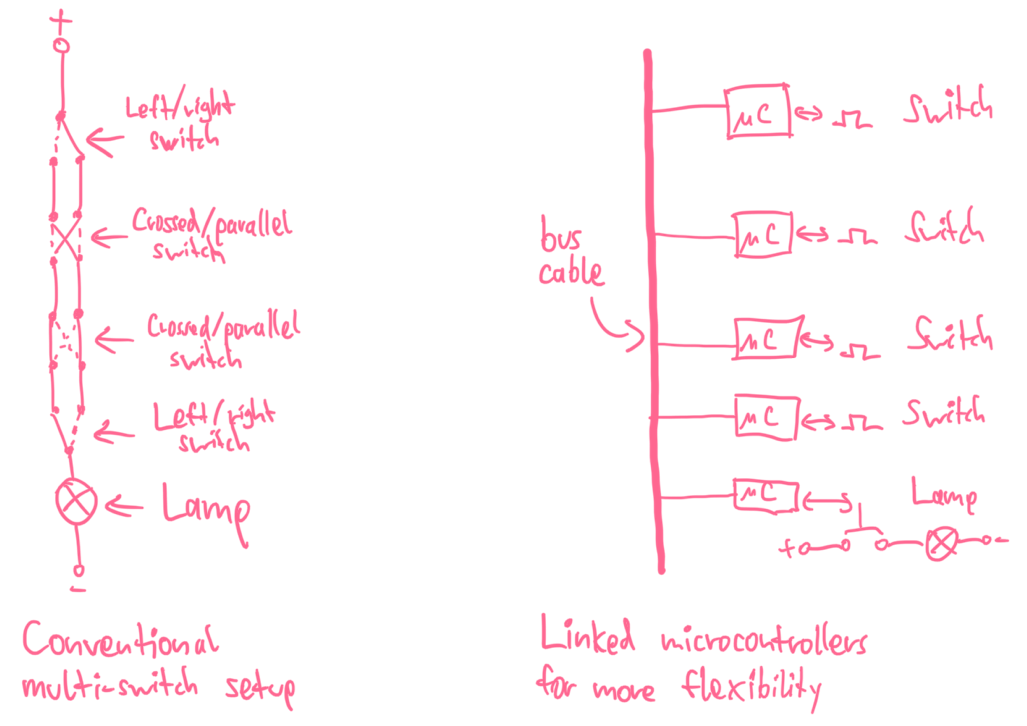 +
Left/right
switch
Crossed/parallel
switch
Crossed/parallel
switch
Left/right
switch
Lamp
-
Conventional
multi-switch setup
bus
cable
μC
Switch
μC
Switch
μC
Switch
μC
Switch
μC
Lamp
+
-
Linked microcontrollers
for more flexibility